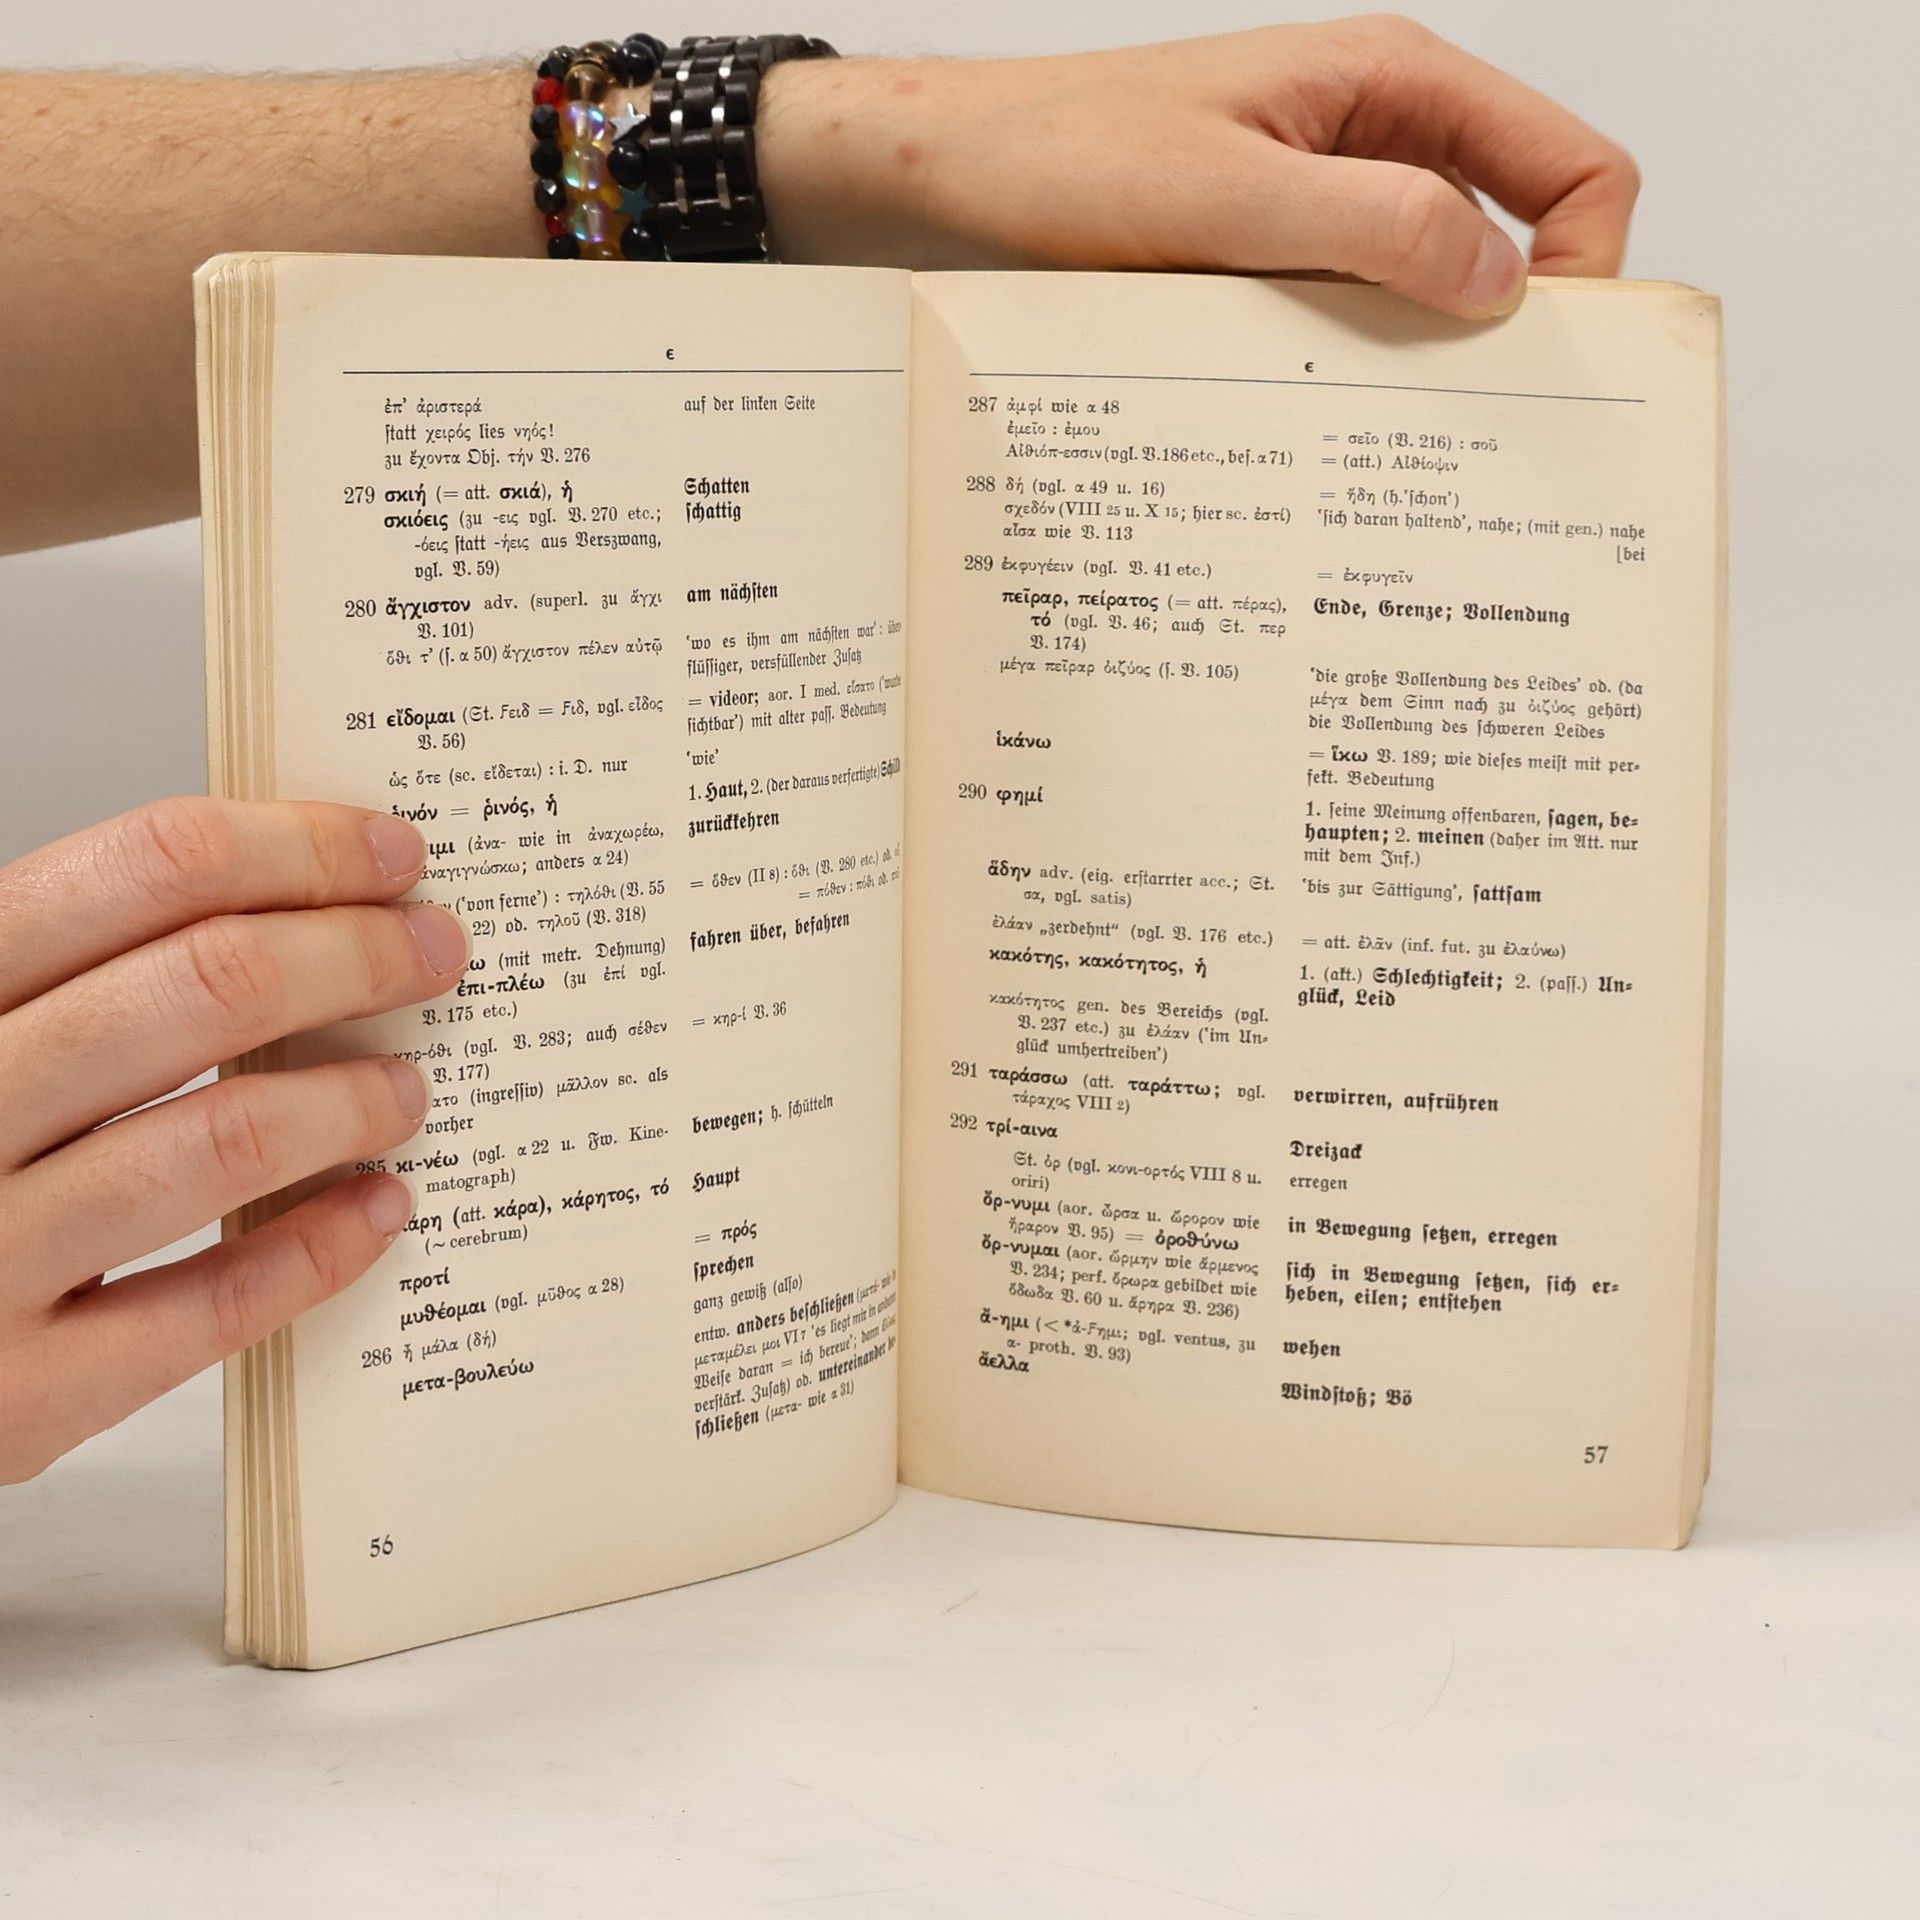 ε
ἐπ’ ἀριστερά auf der linken Seite
statt χειρός lies νηός!
zu ἔχοντα Obj. τήν V. 276
279 σκιή (= att. σκιά), ἡ Schatten
σκιόεις (zu -εις vgl. V. 270 etc.; schattig
-όεις statt -ήεις aus Verszwang,
vgl. V. 59)
280 ἄγχιστον adv. (superl. zu ἄγχι am nächsten
V. 101)
ὅθι τ’ (s. α 50) ἄγχιστον πέλεν αὐτῷ ‘wo es ihm am nächsten war’: über
flüssiger, versfüllender Zusatz
281 εἴδομαι (St. Ϝειδ = Ϝιδ, vgl. εἶδος = videor; aor. I med. εἴσατο (‘wurde
V. 56) sichtbar’) mit alter pass. Bedeutung
ὡς ὅτε (sc. εἴδεται) : i. D. nur ‘wie’
ῥινόν = ῥινός, ἡ 1. Haut, 2. (der daraus verfertigte) Schild
ιμι (ἀνα- wie in ἀναχωρέω, zurückkehren
ἀναγιγνώσκω; anders α 24)
(‘von ferne’) : τηλόθι (V. 55 = ὅθεν (II 8) : ὅθι (V. 280 etc.) od.
22) od. τηλοῦ (V. 318) = πόθεν : πόθι od.
ω (mit metr. Dehnung) fahren über, befahren
ἐπι-πλέω (zu ἐπί vgl.
V. 175 etc.)
κηρ-όθι (vgl. V. 283; auch σέθεν = κηρ-ί V. 36
V. 177)
ατο (ingressiv) μᾶλλον sc. als
vorher
285 κι-νέω (vgl. α 22 u. Fw. Kine- bewegen; h. schütteln
matograph)
κάρη (att. κάρα), κάρητος, τό Haupt
(~ cerebrum)
προτί = πρός
μυθέομαι (vgl. μῦθος α 28) sprechen
286 ἦ μάλα (δή) ganz gewiß (also)
μετα-βουλεύω entw. anders beschließen (μετά- wie in
μεταμέλει μοι VI 7 ‘es liegt mir in anderer
Weise daran = ich bereue’; dann
verstärk. Zusatz) od. untereinander be
schließen (μετα- wie α 31)
56
ε
287 ἀμφί wie α 48
ἐμεῖο : ἐμου = σεῖο (V. 216) : σοῦ
Αἰθιόπ-εσσιν (vgl. V. 186 etc., bes. α 71) = (att.) Αἰθίοψιν
288 δή (vgl. α 49 u. 16) = ἤδη (h. ‘schon’)
σχεδόν (VIII 25 u. X 15; hier sc. ἐστί) ‘sich daran haltend’, nahe; (mit gen.) nahe
αἶσα wie V. 113 [bei
289 ἐκφυγέειν (vgl. V. 41 etc.) = ἐκφυγεῖν
πεῖραρ, πείρατος (= att. πέρας), Ende, Grenze; Vollendung
τό (vgl. V. 46; auch St. περ
V. 174)
μέγα πεῖραρ ὀιζύος (s. V. 105) ‘die große Vollendung des Leides’ od. (da
μέγα dem Sinn nach zu ὀιζύος gehört)
die Vollendung des schweren Leides
ἱκάνω = ἵκω V. 189; wie dieses meist mit per-
fekt. Bedeutung
290 φημί 1. seine Meinung offenbaren, sagen, be-
haupten; 2. meinen (daher im Att. nur
mit dem Inf.)
ἅδην adv. (eig. erstarrter acc.; St. ‘bis zur Sättigung’, sattsam
σα, vgl. satis)
ἐλάαν „zerdehnt“ (vgl. V. 176 etc.) = att. ἐλᾶν (inf. fut. zu ἐλαύνω)
κακότης, κακότητος, ἡ 1. (akt.) Schlechtigkeit; 2. (pass.) Un-
glück, Leid
κακότητος gen. des Bereichs (vgl.
V. 237 etc.) zu ἐλάαν (‘im Un-
glück umhertreiben’)
291 ταράσσω (att. ταράττω; vgl. verwirren, aufrühren
τάραχος VIII 2)
292 τρί-αινα Dreizack
St. ὀρ (vgl. κονι-ορτός VIII 8 u. erregen
oriri)
ὄρ-νυμι (aor. ὦρσα u. ὤρορον wie in Bewegung setzen, erregen
ἤραρον V. 95) = ὀροθύνω
ὄρ-νυμαι (aor. ὤρμην wie ἄρμενος sich in Bewegung setzen, sich er-
V. 234; perf. ὄρωρα gebildet wie heben, eilen; entstehen
ὄδωδα V. 60 u. ἄρηρα V. 236)
ἄ-ημι (< *ἀ-Ϝημι; vgl. ventus, zu wehen
α- proth. V. 93)
ἄελλα Windstoß; Bö
57